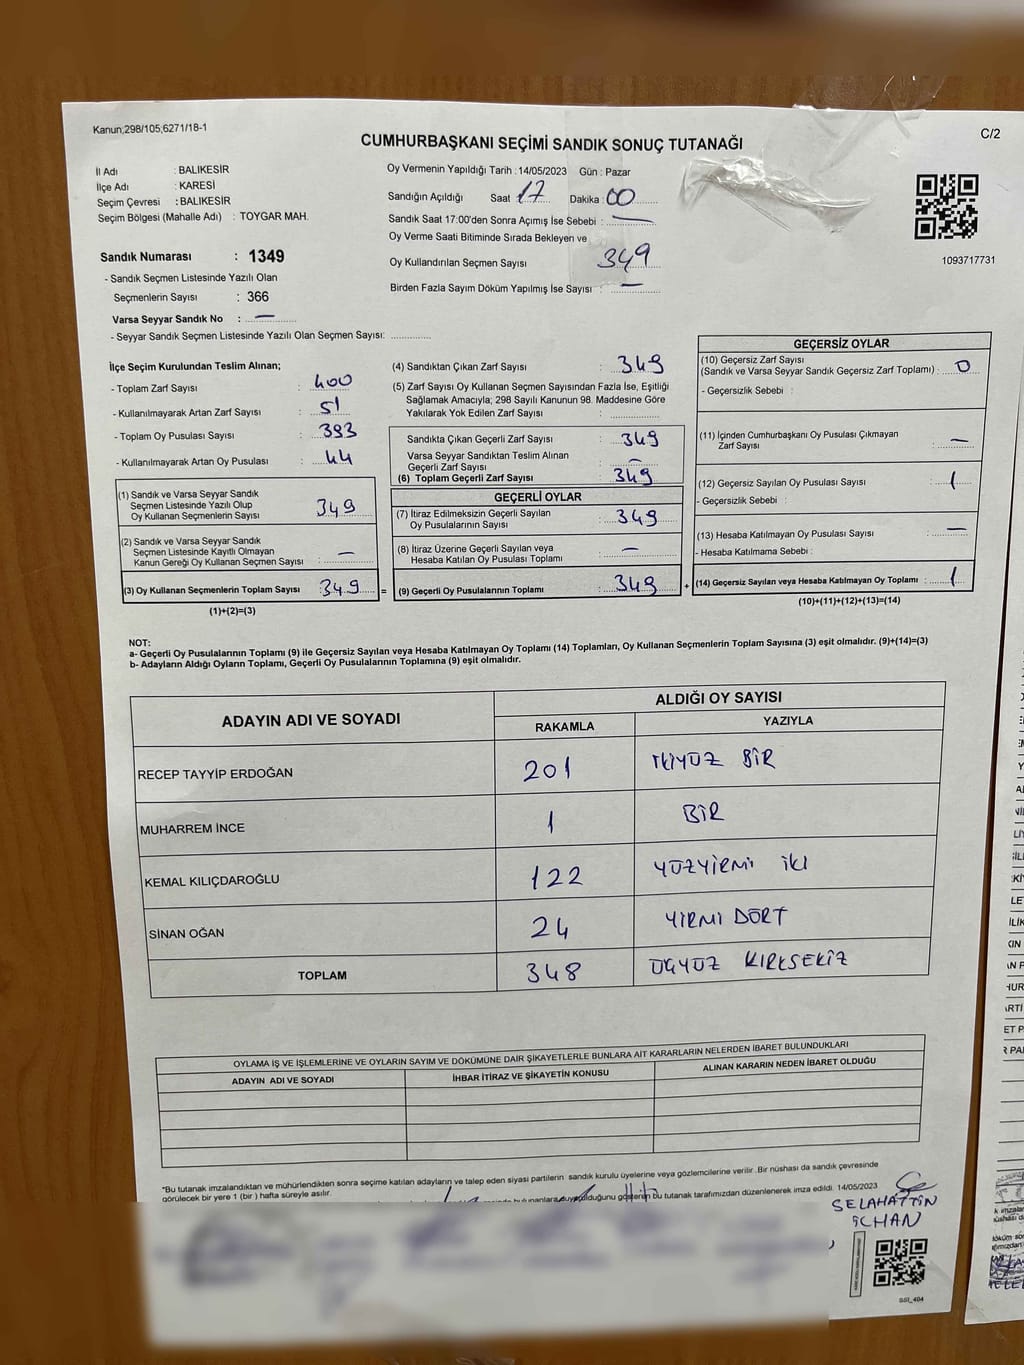 Kanun;298/105;6271/18-1
C/2
CUMHURBAŞKANI SEÇİMİ SANDIK SONUÇ TUTANAĞI
İl Adı : BALIKESİR
İlçe Adı : KARESİ
Seçim Çevresi : BALIKESİR
Seçim Bölgesi (Mahalle Adı) : TOYGAR MAH.
Sandık Numarası : 1349
- Sandık Seçmen Listesinde Yazılı Olan
Seçmenlerin Sayısı : 366
Varsa Seyyar Sandık No : —
- Seyyar Sandık Seçmen Listesinde Yazılı Olan Seçmen Sayısı: ............
Oy Vermenin Yapıldığı Tarih : 14/05/2023 Gün : Pazar
Sandığın Açıldığı Saat 17 Dakika : 00
Sandık Saat 17:00'den Sonra Açımış İse Sebebi : —
Oy Verme Saati Bitiminde Sırada Bekleyen ve
Oy Kullandırılan Seçmen Sayısı 349
Birden Fazla Sayım Döküm Yapılmış İse Sayısı : —
1093717731
İlçe Seçim Kurulundan Teslim Alınan;
- Toplam Zarf Sayısı : 400
- Kullanılmayarak Artan Zarf Sayısı : 51
- Toplam Oy Pusulası Sayısı : 393
- Kullanılmayarak Artan Oy Pusulası : 44
(1) Sandık ve Varsa Seyyar Sandık
Seçmen Listesinde Yazılı Olup
Oy Kullanan Seçmenlerin Sayısı 349
(2) Sandık ve Varsa Seyyar Sandık
Seçmen Listesinde Kayıtlı Olmayan
Kanun Gereği Oy Kullanan Seçmen Sayısı : —
(3) Oy Kullanan Seçmenlerin Toplam Sayısı : 349 =
(1)+(2)=(3)
(4) Sandıktan Çıkan Zarf Sayısı : 349
(5) Zarf Sayısı Oy Kullanan Seçmen Sayısından Fazla İse, Eşitliği
Sağlamak Amacıyla; 298 Sayılı Kanunun 98. Maddesine Göre
Yakılarak Yok Edilen Zarf Sayısı : ............
Sandıkta Çıkan Geçerli Zarf Sayısı : 349
Varsa Seyyar Sandıktan Teslim Alınan
Geçerli Zarf Sayısı : —
(6) Toplam Geçerli Zarf Sayısı : 349
GEÇERLİ OYLAR
(7) İtiraz Edilmeksizin Geçerli Sayılan
Oy Pusulalarının Sayısı : 349
(8) İtiraz Üzerine Geçerli Sayılan veya
Hesaba Katılan Oy Pusulası Toplamı : —
(9) Geçerli Oy Pusulalarının Toplamı : 349 +
GEÇERSİZ OYLAR
(10) Geçersiz Zarf Sayısı
(Sandık ve Varsa Seyyar Sandık Geçersiz Zarf Toplamı) : 0
- Geçersizlik Sebebi :
(11) İçinden Cumhurbaşkanı Oy Pusulası Çıkmayan
Zarf Sayısı : —
(12) Geçersiz Sayılan Oy Pusulası Sayısı : 1
- Geçersizlik Sebebi :
(13) Hesaba Katılmayan Oy Pusulası Sayısı : —
- Hesaba Katılmama Sebebi :
(14) Geçersiz Sayılan veya Hesaba Katılmayan Oy Toplamı : 1
(10)+(11)+(12)+(13)=(14)
NOT:
a- Geçerli Oy Pusulalarının Toplamı (9) ile Geçersiz Sayılan veya Hesaba Katılmayan Oy Toplamı (14) Toplamları, Oy Kullanan Seçmenlerin Toplam Sayısına (3) eşit olmalıdır. (9)+(14)=(3)
b- Adayların Aldığı Oyların Toplamı, Geçerli Oy Pusulalarının Toplamına (9) eşit olmalıdır.
ADAYIN ADI VE SOYADI
ALDIĞI OY SAYISI
RAKAMLA YAZIYLA
RECEP TAYYİP ERDOĞAN 201 İKİYÜZ BİR
MUHARREM İNCE 1 BİR
KEMAL KILIÇDAROĞLU 122 YÜZYİRMİ İKİ
SİNAN OĞAN 24 YİRMİ DÖRT
TOPLAM 348 ÜÇYÜZ KIRKSEKİZ
OYLAMA İŞ VE İŞLEMLERİNE VE OYLARIN SAYIM VE DÖKÜMÜNE DAİR ŞİKAYETLERLE BUNLARA AİT KARARLARIN NELERDEN İBARET BULUNDUKLARI
ADAYIN ADI VE SOYADI İHBAR İTİRAZ VE ŞİKAYETİN KONUSU ALINAN KARARIN NEDEN İBARET OLDUĞU
*Bu tutanak imzalandıktan ve mühürlendikten sonra seçime katılan adayların ve talep eden siyasi partilerin sandık kurulu üyelerine veya gözlemcilerine verilir .Bir nüshası da sandık çevresinde
görülecek bir yere 1 (bir ) hafta süreyle asılır.
bu tutanak tarafımızdan düzenlenerek imza edildi. 14/05/2023
SELAHATTİN
İLHAN
SSI_404